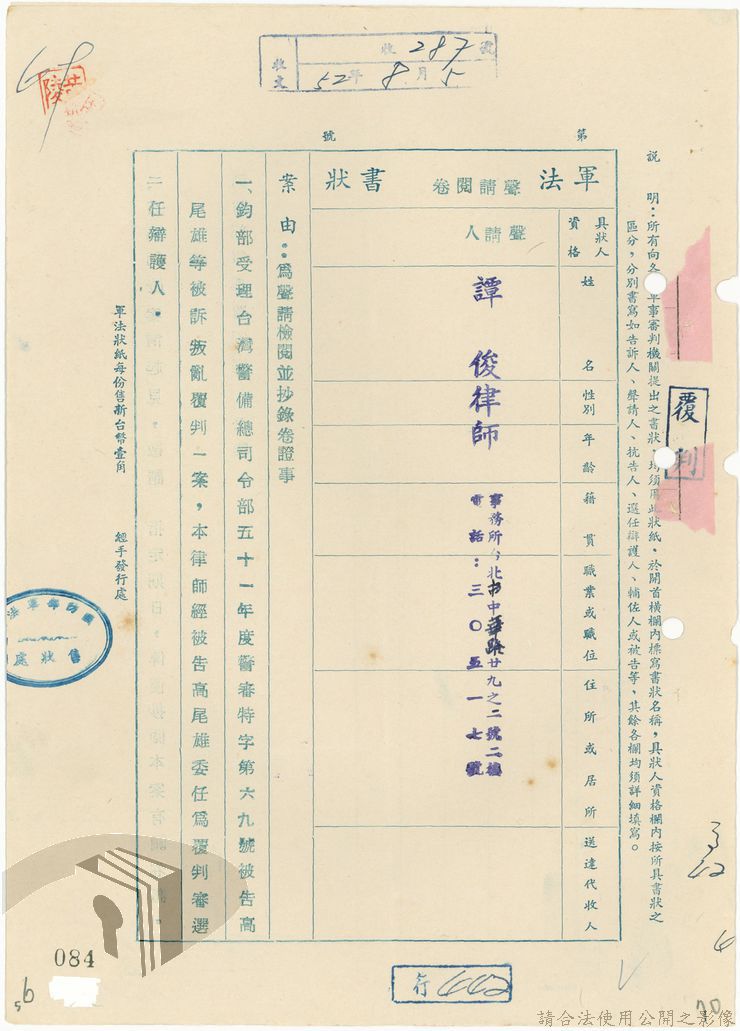 收 287 號
收文 52年8月5
第 號
說明：所有向各軍事審判機關提出之書狀，均須用此狀紙．於開首橫欄內標寫書狀名稱，具狀人資格欄內按所具書狀之
區分，分別書寫如告訴人、聲請人、抗告人、選任辯護人、輔佐人或被告等，其餘各欄均須詳細填寫。
覆判
軍法 聲請閱卷 書狀
具狀人資格
姓名
性別
年齡
籍貫
職業或職位
住所或居所
送達代收人
聲請人
譚俊律師
事務所台北市中華路廿九之二號二樓
電話：三〇五一七號
案由：為聲請檢閱並抄錄卷證事
一、鈞部受理台灣警備總司令部五十一年度警審特字第六九號被告高
尾雄等被訴叛亂覆判一案，本律師經被告高尾雄委任為覆判審選
任辯護人。
二
軍法狀紙每份售新台幣壹角 經手發行處
國防部軍法
售狀處
084
行 442
56
20
請合法使用公開之影像